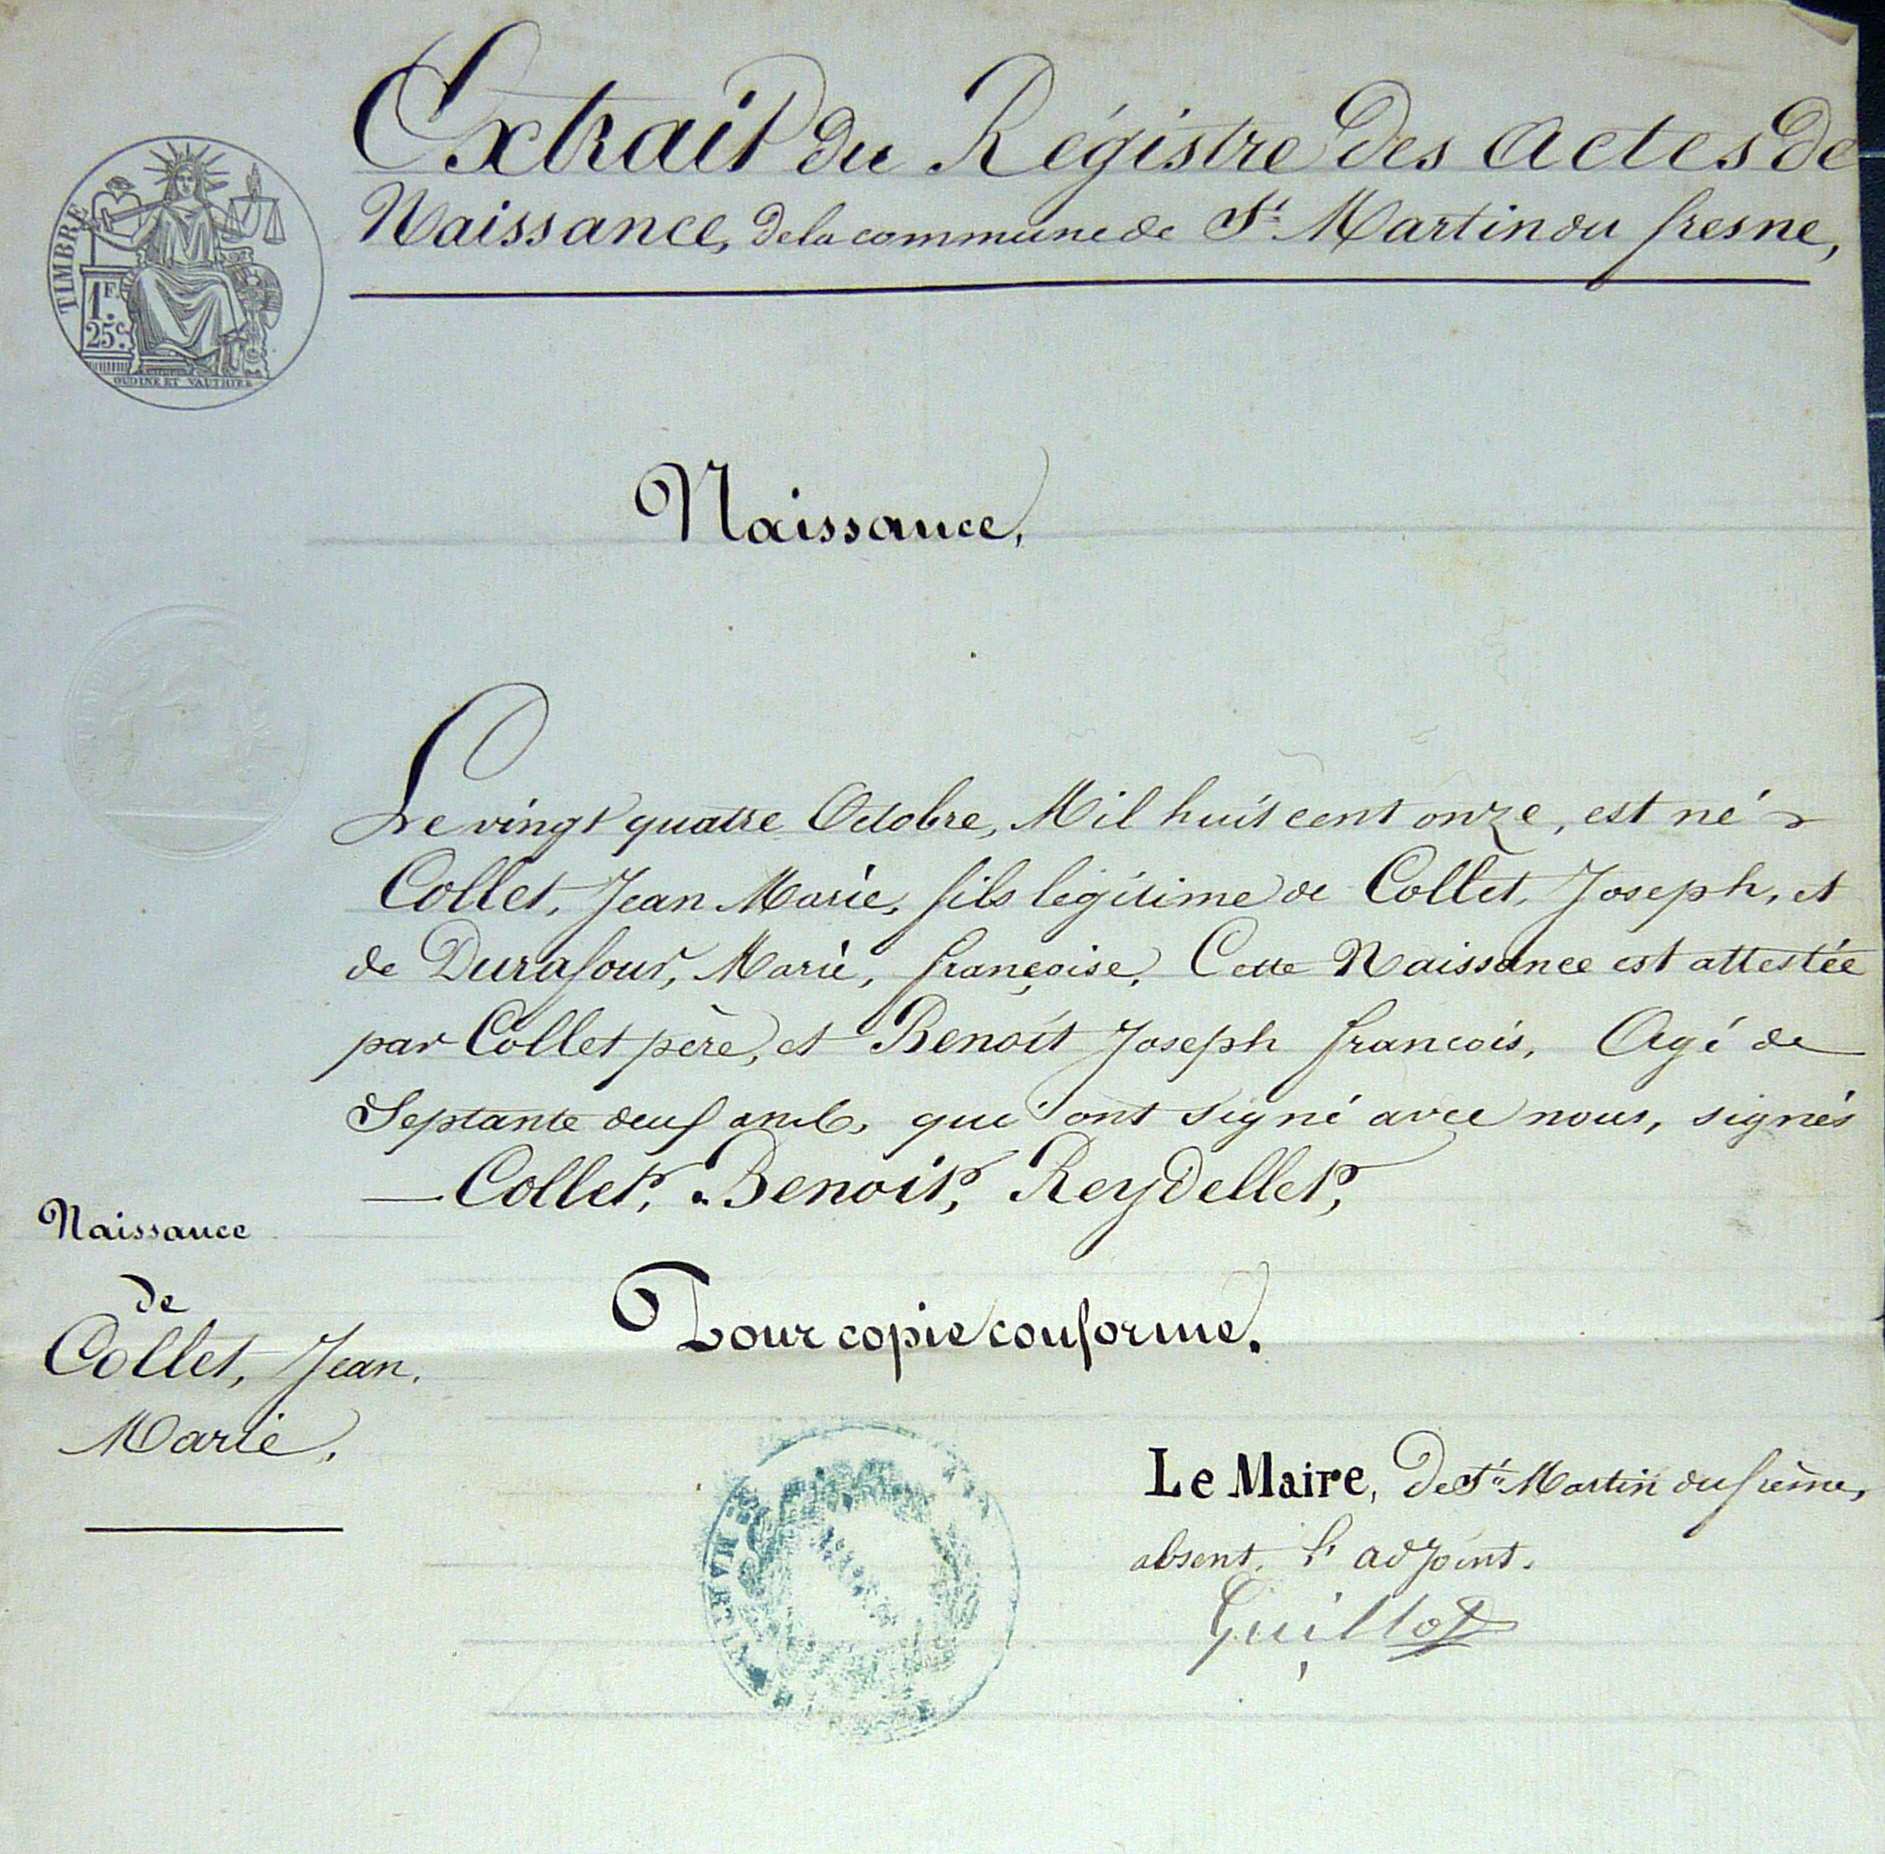 Extrait du Régistre des Actes de
Naissance, de la commune de St Martin du fresne,
TIMBRE
1F.
25c.
OUDINE ET VAUTHIER
Naissance,
Le vingt quatre Octobre, Mil huit cent onze, est né
Collet, Jean Marie, fils légitime de Collet, Joseph, et
de Durafour, Marie, françoise, Cette Naissance est attestée
par Collet père, et Benoit Joseph francois, Agé de
Septante deuf ans, qui ont signé avec nous, signés
— Collet, Benoit, Reydellet,
Naissance
de
Collet, Jean.
Marie,
Pour copie conforme.
Le Maire, de St Martin du frèsne,
absent, l'adjoint.
Guillot
MAIRIE